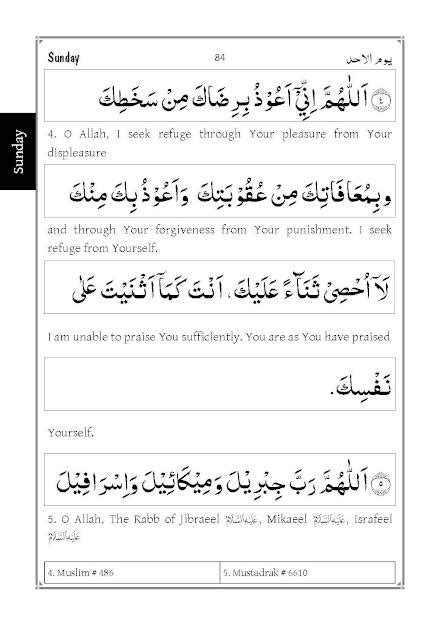 Sunday 84 يوم الاحد
Sunday
٤ اَللّٰهُمَّ اِنِّيْٓ اَعُوْذُ بِرِضَاكَ مِنْ سَخَطِكَ
4. O Allah, I seek refuge through Your pleasure from Your
displeasure
وبِمُعَافَاتِكَ مِنْ عُقُوْبَتِكَ وَاَعُوْذُ بِكَ مِنْكَ
and through Your forgiveness from Your punishment. I seek
refuge from Yourself.
لَآ اُحْصِيْ ثَنَآءً عَلَيْكَ، اَنْتَ كَمَآ اَثْنَيْتَ عَلٰى
I am unable to praise You sufficiently. You are as You have praised
نَفْسِكَ.
Yourself.
٥ اَللّٰهُمَّ رَبَّ جِبْرِيْلَ وَمِيْكَائِيْلَ وَاِسْرَافِيْلَ
5. O Allah, The Rabb of Jibraeel عَلَيْهِ السَّلَامُ, Mikaeel عَلَيْهِ السَّلَامُ, Israfeel
عَلَيْهِ السَّلَامُ
4. Muslim # 486 5. Mustadrak # 6610